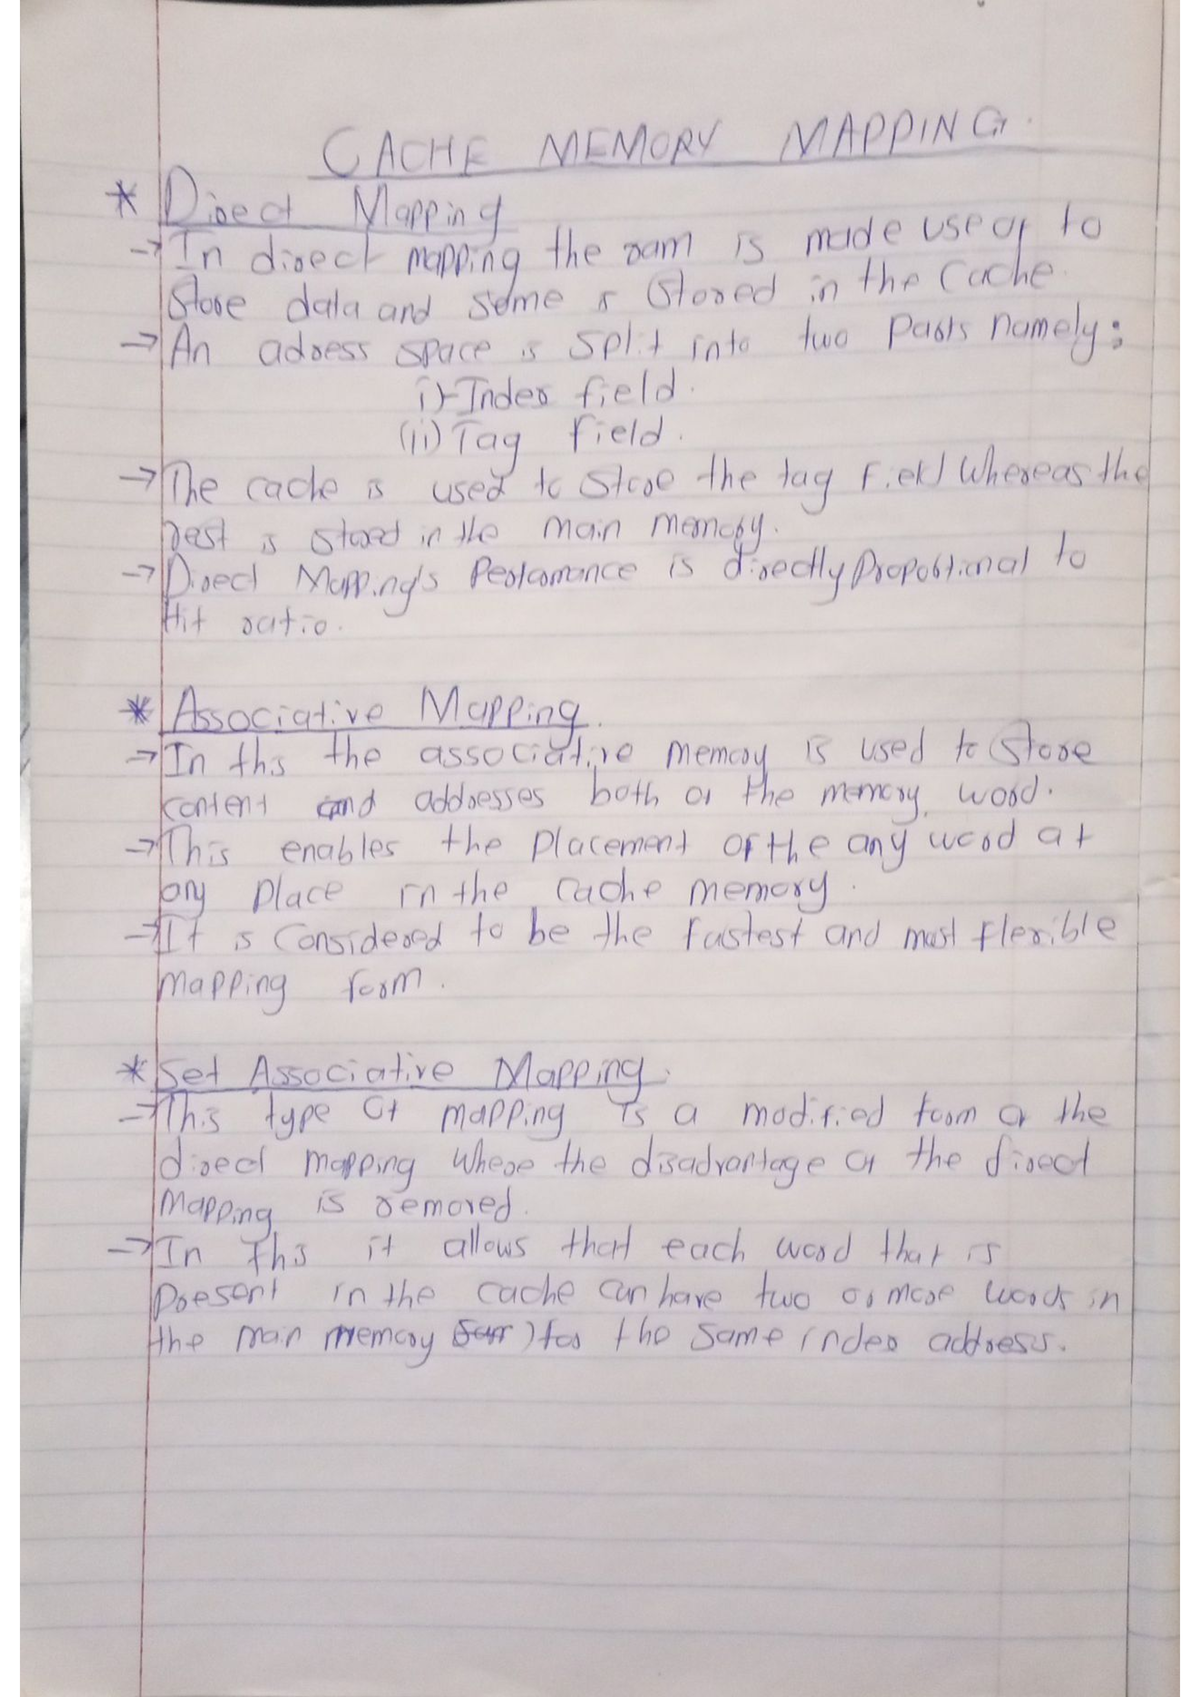 CACHE MEMORY MAPPING.
* Direct Mapping
→ In direct mapping the ram is made use of to
Store data and some is Stored in the Cache.
→ An adress space is split into two parts namely;
i) Index field.
(ii) Tag field.
→ The cache is used to store the tag field whereas the
rest is stored in the main memory.
→ Direct Mapping's Performance is directly proportional to
Hit ratio.
* Associative Mapping.
→ In this the associative memory is used to store
content and addresses both of the memory word.
→ This enables the placement of the any word at
any place in the cache memory.
→ It is Considered to be the fastest and most flexible
mapping form.
* Set Associative Mapping.
→ This type of mapping is a modified form of the
direct mapping where the disadvantage of the direct
Mapping is removed.
→ In this it allows that each word that is
present in the cache can have two or more words in
the main memory for the same index address.